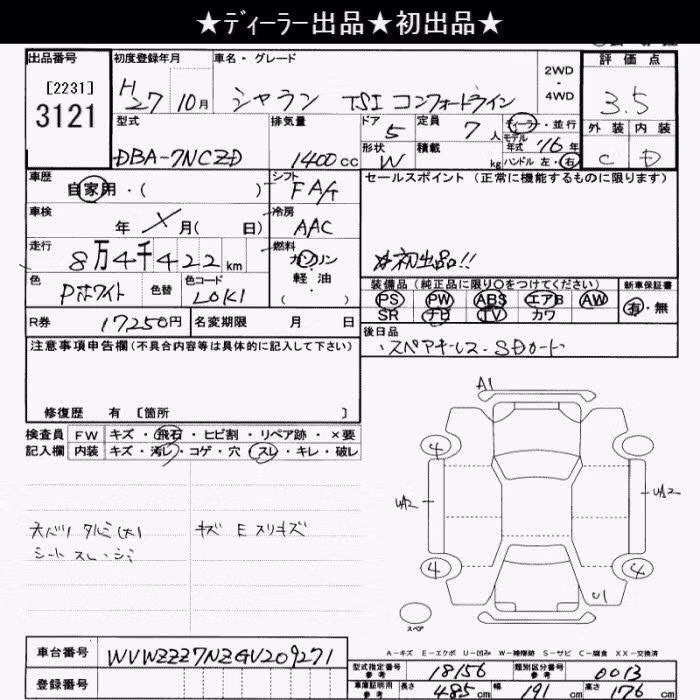 ★ディーラー出品★初出品★
出品番号 初度登録年月 車名・グレード 2WD・4WD 評価点
[2231] 3121 H27 10月 シャラン TSI コンフォートライン 3.5
型式 排気量 ドア 定員 ディーラー・並行 外装 内装
DBA-7NCZD 1400cc 5 7人 モデル年式 '16年 C D
形状 W 積載 kg ハンドル 左・右
車歴 シフト セールスポイント (正常に機能するものに限ります)
自家用・( ) FA/t
車検 冷房
年 月( 日) AAC
走行 燃料
8万4千422km ガソリン ※初出品!!
色 色替 色コード 軽・油 装備品 (純正品に限り○をつけてください) 新車保証書
Pホワイト LOK1 ( ) PS PW ABS エアB AW 有・無
SR ナビ TV カワ
R券 17250円 名変期限 月 日 後日品
注意事項申告欄(不具合内容等は具体的に記入して下さい) ・スペアキーレス・SDカード
修復歴 有 [箇所 ]
検査員 FW キズ・飛石・ヒビ割・リペア跡・×要
記入欄 内装 キズ・汚レ・コゲ・穴・スレ・キレ・破レ
A1
4
UA2 UA2
キズ E スリキズ
シート スレ・シミ
4 4
U1
スペア
A-キズ E-エクボ U-凹み W-補修跡 S-サビ C-腐食 XX-交換済
車台番号 WVWZZZ7NZGV209271 型式指定番号 参考 18156 類別区分番号 参考 0013
登録番号 車庫証明用 参考 長さ 485cm 幅 191cm 高さ 176cm